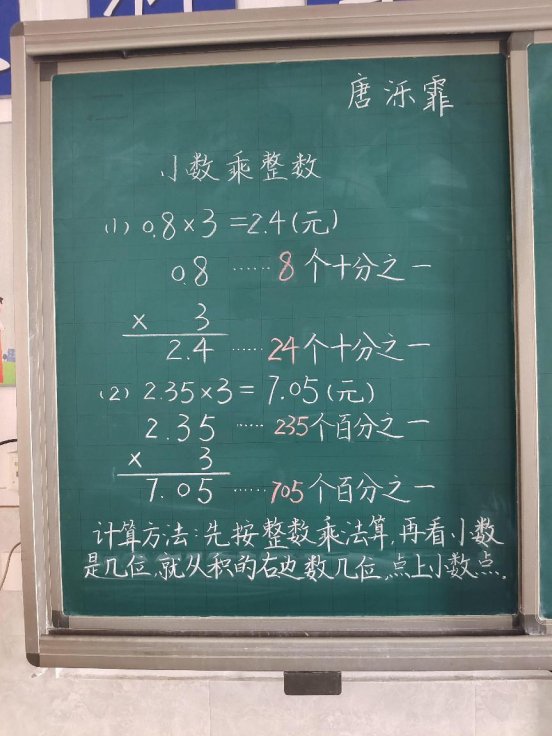 唐泺霏
小数乘整数
(1) 0.8×3=2.4(元)
0.8 …… 8个十分之一
× 3
2.4 …… 24个十分之一
(2) 2.35×3=7.05(元)
2.35 …… 235个百分之一
× 3
7.05 …… 705个百分之一
计算方法:先按整数乘法算,再看小数
是几位,就从积的右边数几位,点上小数点.